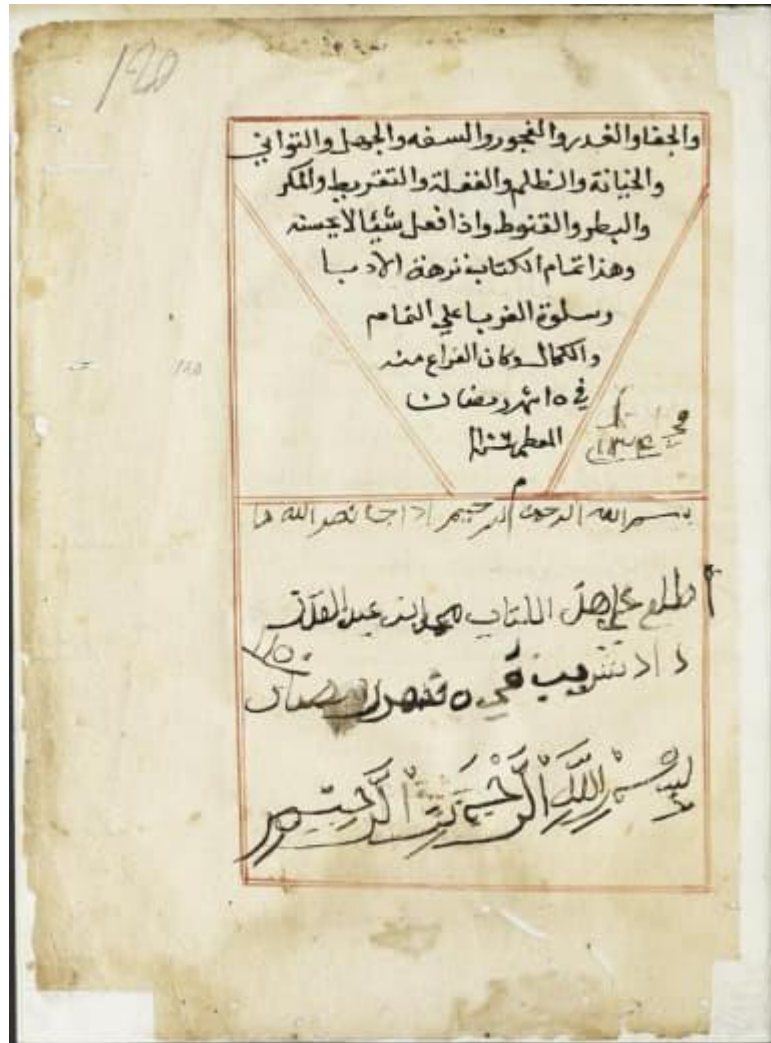 120
والجفا والغدر والفجور والسفه والجهل والتواني
والخيانة والظلم والغفلة والتفريط والمكر
والبطر والقنوط واذا فعل شيًا لا يحسنه
وهذا تمام الكتاب نزهة الادبا
وسلوة الغربا علي التمام
والكمال وكان الفراغ منه
في ١٥ شهر رمضان
المعظم
م
بسم الله الرحمن الرحيم اذا جا نصر الله
طلع علي هذا الكتاب محمد ابن عبد
في ٥
بسم الله الرحمن الرحيم